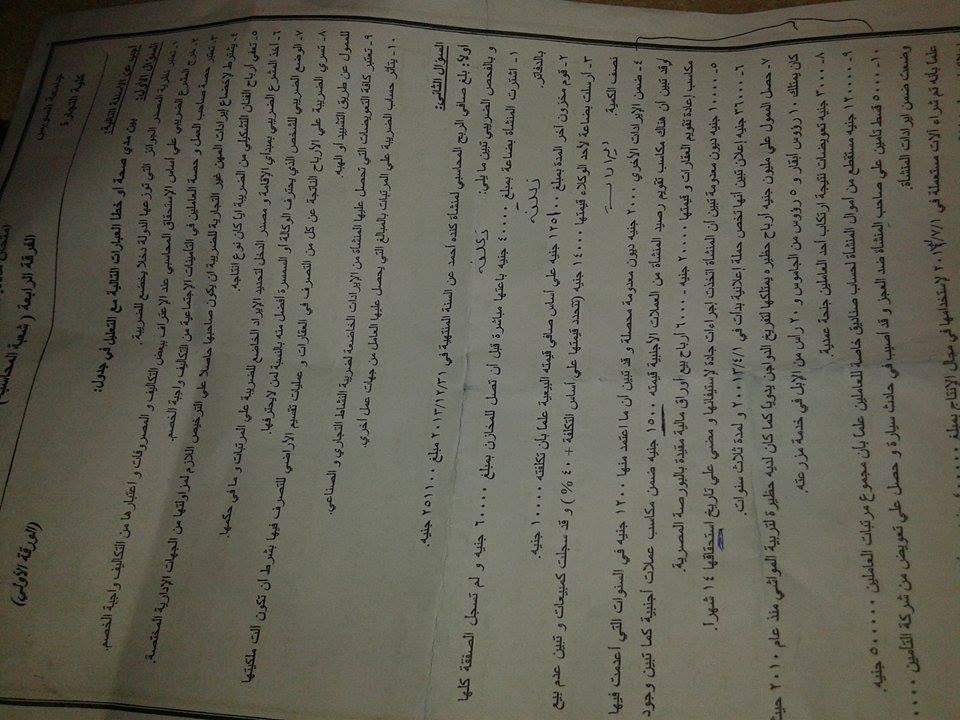 جامعة السويس
كلية التجارة
الفرقة الرابعة (شعبة المحاسبة)
(الورقة الأولى)
أجب عن الأسئلة التالية:
السؤال الأول: بين مدي صحة أو خطأ العبارات التالية مع التعليل في جدول:
١- تعتبر ضريبة الجوائز التي توزعها الدولة دخلا يخضع للضريبة.
٢- خرج المشرع الضريبي على أساس الاستحقاق المحاسبي عند الاعتراف ببعض التكاليف و المصروفات و اعتبارها من التكاليف واجبة الخصم.
٣- تعتبر حصة صاحب العمل و حصة العاملين في التأمينات الاجتماعية من التكاليف واجبة الخصم.
٤- يشترط لإخضاع إيرادات المهن غير التجارية للضريبة ان يكون صاحبها حاصلا على الترخيص اللازم لمزاولتها من الجهات الإدارية المختصة.
٥- تعفي أرباح الفنان التشكيلي من الضريبة أيا كان نوع إنتاجه.
٦- أخذ المشرع الضريبي بمبدأي الإقامة و مصدر الدخل لتحديد الإيراد الخاضع للضريبة علي المرتبات و ما في حكمها.
٧- الوضع الضريبي للشخص الذي يحترف الوكالة أو السمسرة أفضل منه بالنسبة لمن لا يحترفها.
٨- تسري الضريبة علي الأرباح الناتجة عن كل من التصرف في العقارات و عمليات تقسيم الأراضي للتصرف فيها بشرط ان تكون آلت ملكيتها
للممول عن طريق التشييد أو الهبة.
٩- تعتبر كافة التعويضات التي تحصل عليها المنشأة من الإيرادات الخاضعة لضريبة النشاط التجاري و الصناعي.
١٠- يتأثر حساب الضريبة علي المرتبات بالمبالغ التي يحصل عليها العامل من جهات عمل أخري.
السؤال الثاني:
أولا: بلغ صافي الربح المحاسبي لمنشأة أحمد عن السنة المنتهية في ٢٠١٣/١٢/٣١ مبلغ ٢٥١١٠٠ جنيه.
و بالفحص الضريبي تبين ما يلي:
١- اشترت المنشأة بضاعة بمبلغ ٤٠٠٠٠ جنيه باعتها مباشرة قبل أن تصل للمخازن بمبلغ ٦٠٠٠٠ جنيه و لم تسجل الصفقة كلها
بالدفاتر.
٢- قوم مخزون آخر المدة بمبلغ ١٢٥٠٠ جنيه علي أساس صافي قيمته البيعية علما بأن تكلفته ١٠٠٠٠ جنيه.
٣- أرسلت بضاعة لأحد الوكلاء قيمتها ١٤٠٠٠ جنيه (تتحدد قيمتها علي أساس التكلفة + ٤٠ %) و قد سجلت كمبيعات و تبين عدم بيع
نصف الكمية.
٤- ضمن الإيرادات الأخري ٢٠٠٠ جنيه ديون معدومة محصلة و قد تبين أن ما اعتمد منها ١٢٠٠ جنيه في السنوات التي أعدمت فيها
و قد تبين أن هناك مكاسب تقويم رصيد المنشأة من العملات الأجنبية قيمته ١٥٠٠ جنيه ضمن مكاسب عملات أجنبية كما تبين وجود
مكاسب إعادة تقويم العقارات و قيمتها ٢٠٠٠٠ جنيه - ٦٠٠٠ أرباح بيع أوراق مالية مقيدة بالبورصة المصرية.
٥- ١٠٠٠٠ جنيه ديون معدومة تبين أن المنشأة اتخذت إجراءات جادة لإستيفائها و مضي علي تاريخ استحقاقها ١٤ شهرا.
٦- ٣٦٠٠٠ جنيه إعلان تبين انها تخص حملة إعلانية بدأت في ٢٠١٣/٤/١ و لمدة ثلاث سنوات.
٧- حصل الممول علي مليون جنيه أرباح حظيرة يمتلكها لتفريخ الدواجن يدويا كما كان لديه حظيرة لتربية المواشي منذ عام ٢٠١٠ حيث
كان يمتلك ١٠ رؤوس أبقار و ٥ رؤوس من الجاموس و ٢٠ رأس من الإبل في خدمة مزرعته.
٨- ٣٠٠٠٠ جنيه تعويضات نتيجة ارتكاب أحد العاملين جنحة عمدية.
٩- ١٢٠٠٠٠ جنيه مستقطع من أموال المنشأة لحساب صناديق خاصة للعاملين علما بأن مجموع مرتبات العاملين ٥٠٠٠٠٠ جنيه.
١٠- ٥٠٠٠ قسط تأمين علي صاحب المنشأة ضد العجز و قد أصيب في حادث سيارة و حصل علي تعويض من شركة التأمين
وضعت ضمن إيرادات المنشأة
علما بأنه تم شراء آلات مستعملة في ٢٠١٣/٧/١ لإستخدامها في مجال الإنتاج بمبلغ